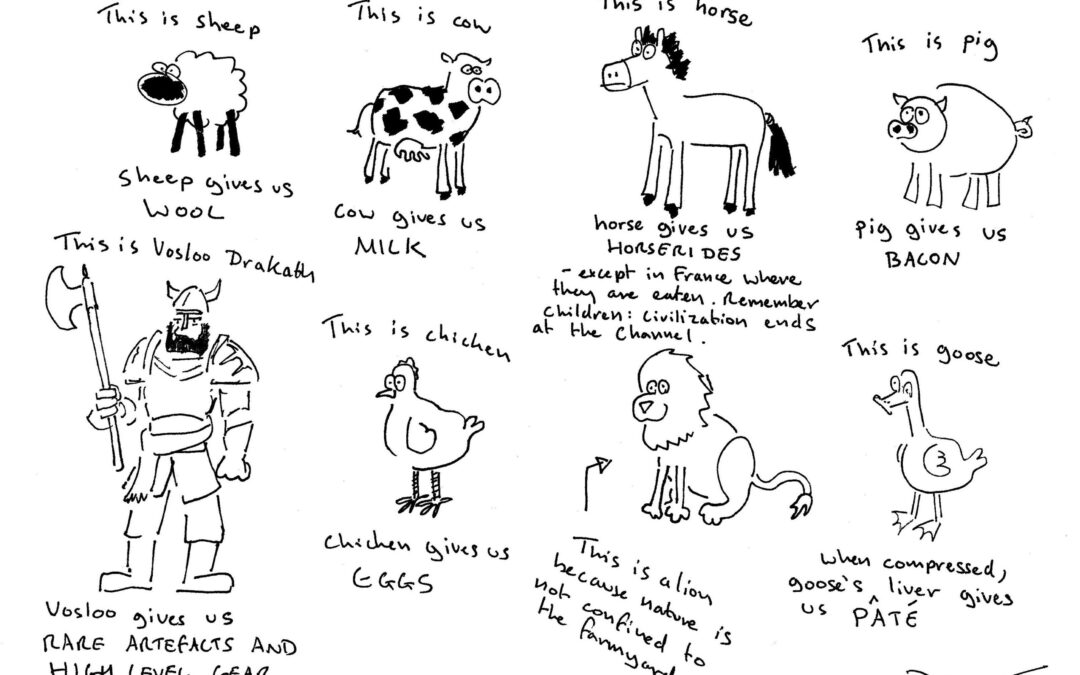 This is sheep
Sheep gives us
WOOL
This is cow
Cow gives us
MILK
This is horse
horse gives us
HORSERIDES
- except in France where
they are eaten. Remember
children: civilization ends
at the Channel.
This is pig
pig gives us
BACON
This is Vosloo Drakath
Vosloo gives us
RARE ARTEFACTS AND
HIGH LEVEL GEAR
This is chicken
Chicken gives us
EGGS
This is a lion
because nature is
not confined to
the farmyard
This is goose
when compressed,
goose's liver gives
us PÂTÉ